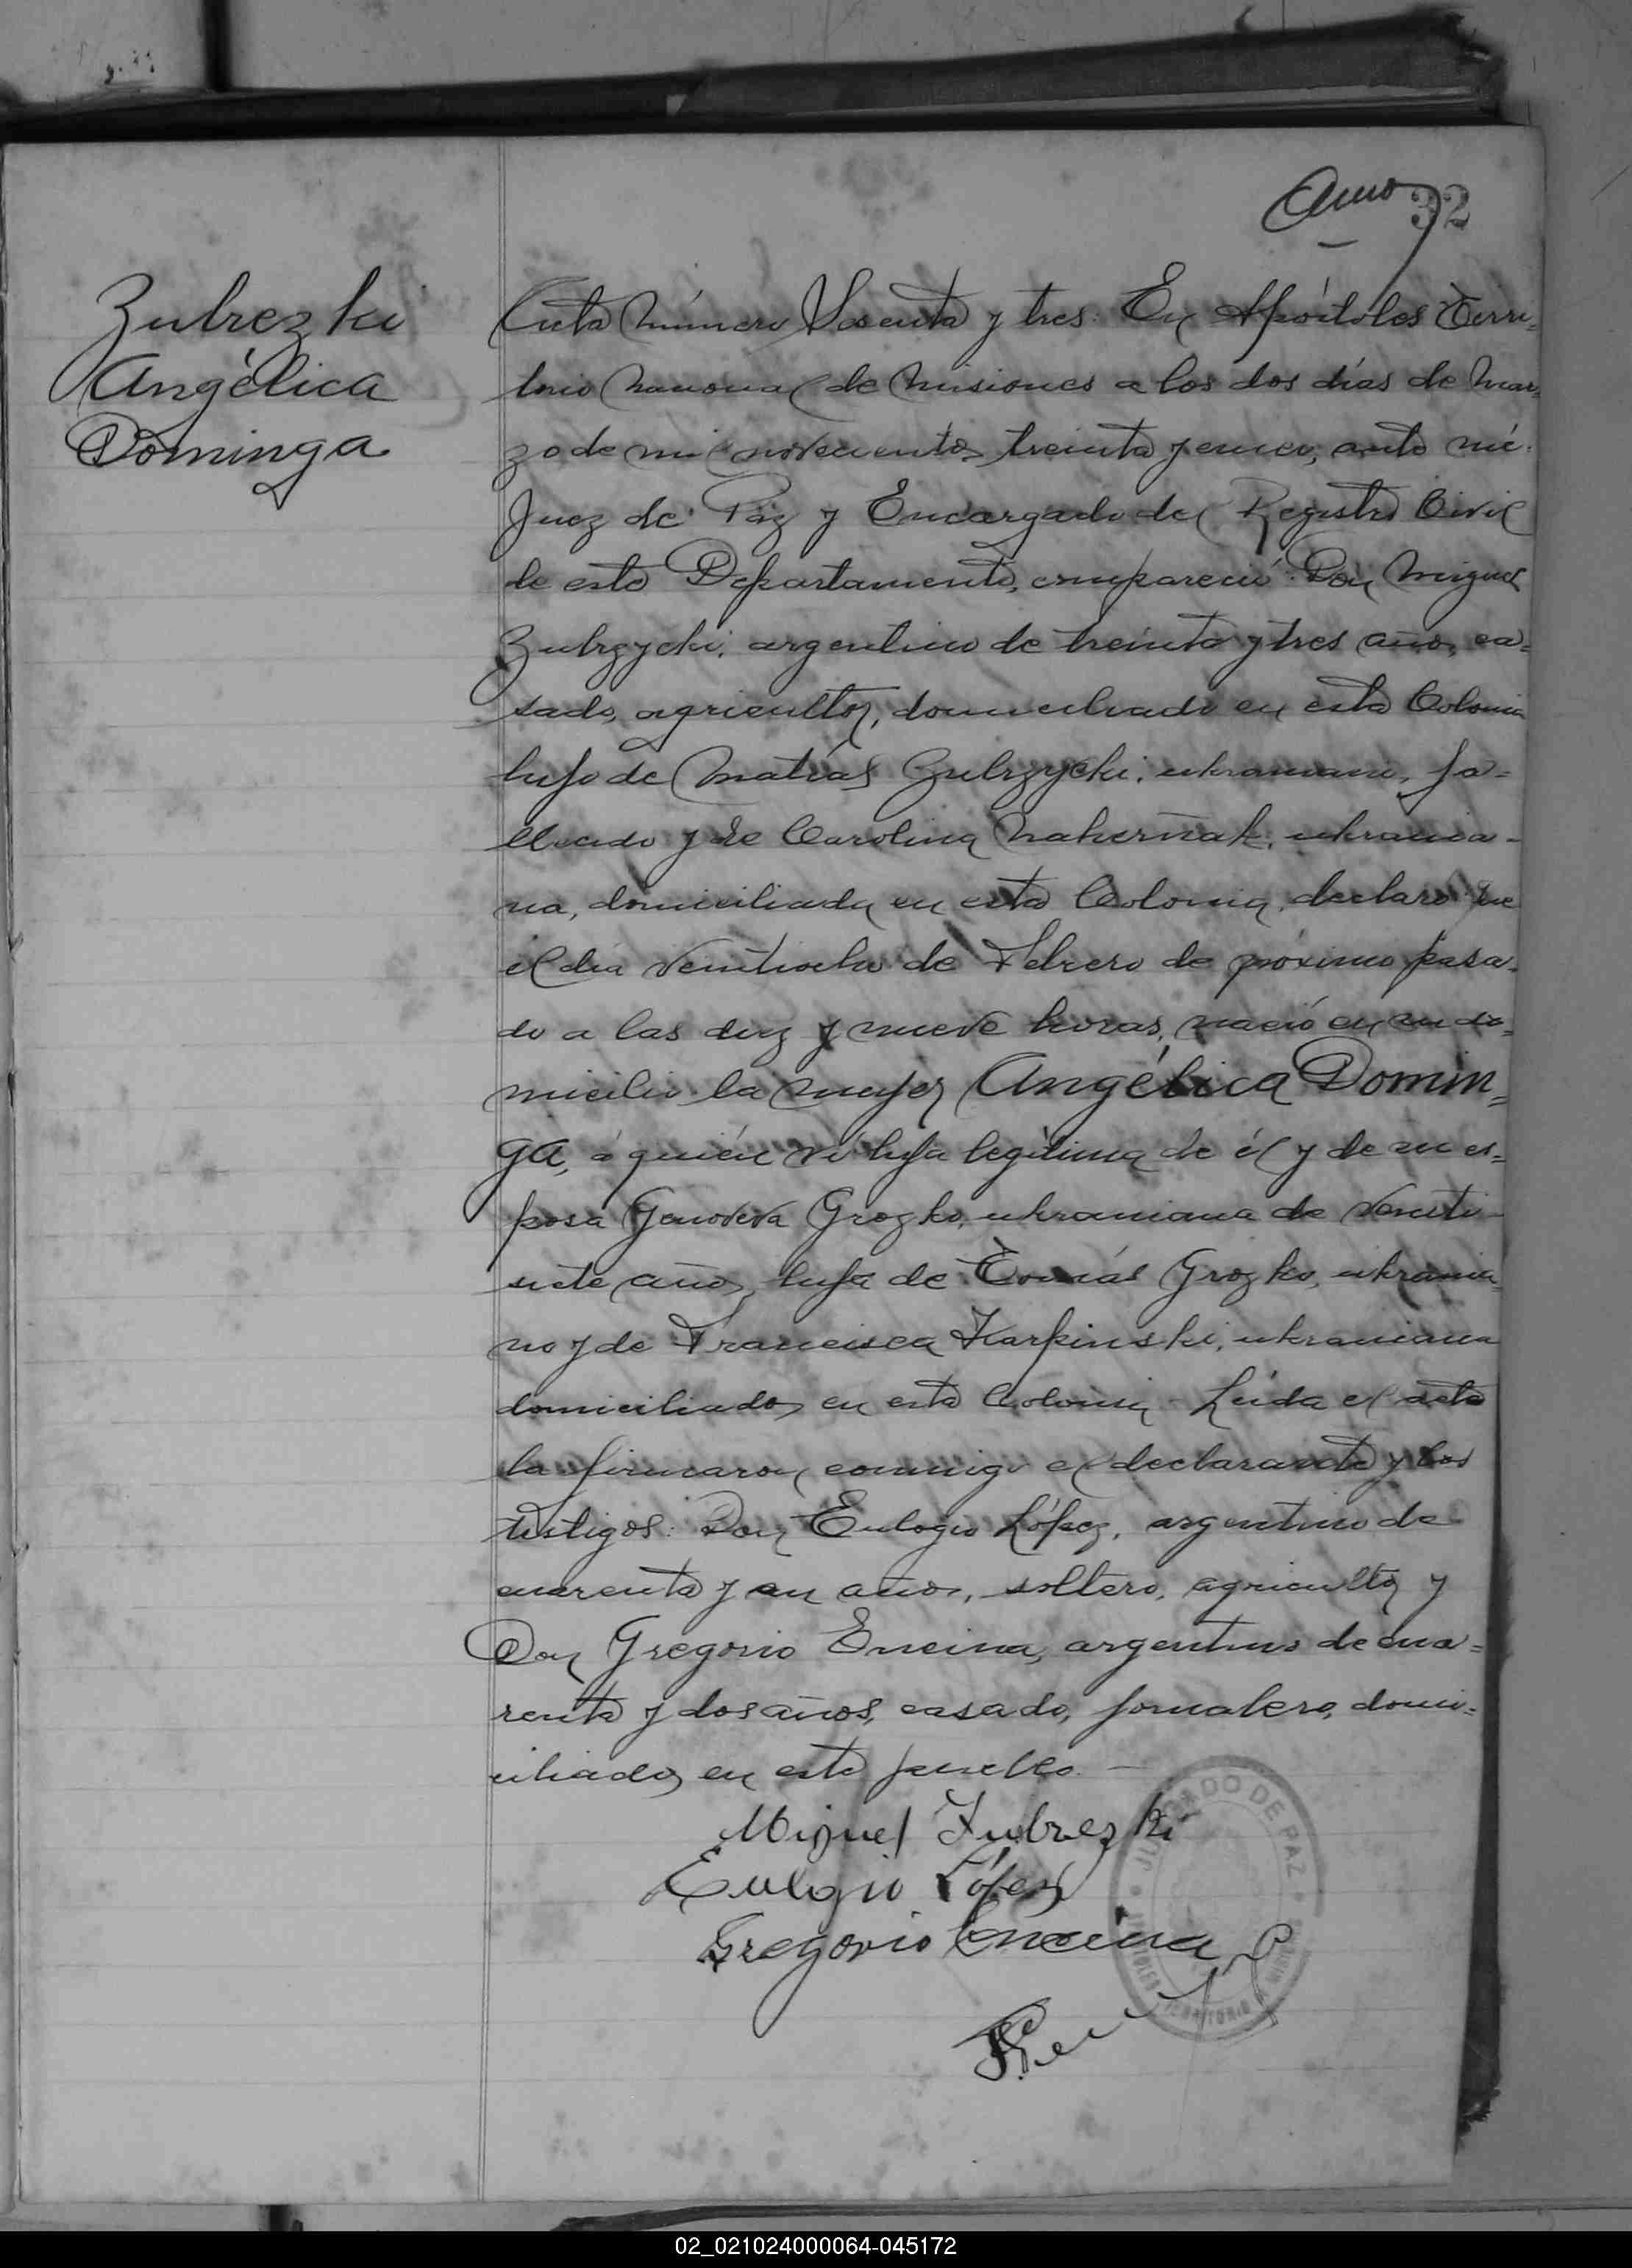 32
Zubrezki
Angélica
Dominga
Acta número Sesenta y tres: En Apóstoles Terri=
torio Nacional de Misiones a los dos días de Mar=
zo de mil novecientos treinta y cinco, ante mí:
Juez de Paz y Encargado del Registro Civil
de este Departamento, compareció: Don Miguel
Zubrzycki: argentino de treinta y tres años, ca=
sado, agricultor, domiciliado en esta Colonia
hijo de Matías Zubrzycki: ukraniano, fa=
llecido y de Carolina ukrania-
na, domiciliada en esta Colonia, declaró que
el día veintiocho de Febrero de próximo pasa-
do a las diez y nueve horas, nació en su do=
micilio la mujer Angélica Domin=
ga, á quién ví hija legítima de él y de su es=
posa Genoveva Grozko, ukraniana de veinti-
siete años, hija de Tomás Grozko, ukrania
no y de Francisca Karpinski, ukraniana
domiciliados en esta Colonia - Leída el acta
la firmaron conmigo el declarante y los
testigos: Don Eulogio López, argentino de
cuarenta y un años, soltero, agricultor y
Don Gregorio Encina, argentino de cua=
renta y dos años, casado, jornalero, domi=
ciliados en este pueblo. —
Miguel Zubrezki
Eulogio López
Gregorio Encina
JUZGADO DE PAZ
02_021024000064-045172